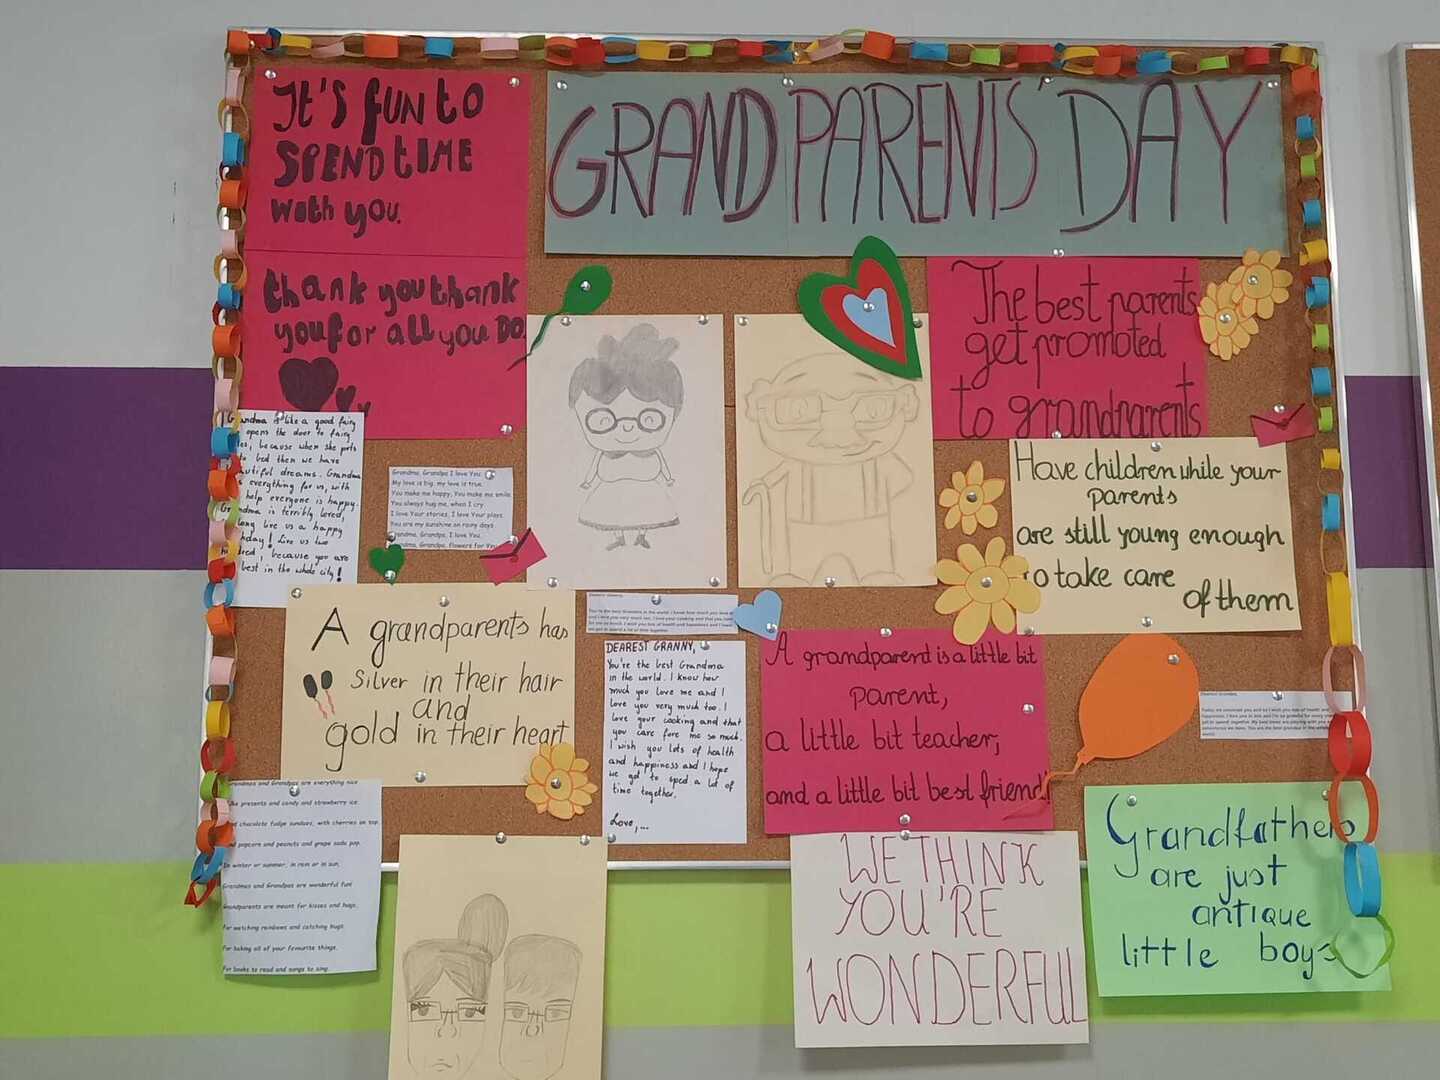 IT'S FUN TO
SPEND TIME
with you.
GRANDPARENTS' DAY
thank you thank
you for all you Do.
The best parents
get promoted
to grandparents
Grandma is like a good fairy
opens the door to fairy
because when she puts
to bed then we have
dreams. Grandma
everything for us, with
help everyone is happy.
Grandma is terribly loved,
live us a happy
! Live us two
because you are
best in the whole city!
Grandma, Grandpa I love You.
My love is big, my love is true.
You make me happy, You make me smile.
You always hug me, when I cry.
I love Your stories, I love Your plays.
You are my sunshine on rainy days.
Grandma, Grandpa, I love You.
Grandma, Grandpa, flowers for You
Have children while your
parents
are still young enough
to take care
of them
A grandparents has
silver in their hair
and
gold in their heart
DEAREST GRANNY,
You're the best Grandma
in the world. I know how
much you love me and I
love you very much too. I
love your cooking and that
you care fore me so much.
I wish you lots of health
and happiness and I hope
we got to sped a lot of
time together.
Love,...
A grandparent is a little bit
parent,
a little bit teacher,
and a little bit best friend!
Grandmas and Grandpas are everything nice
presents and candy and strawberry ice
chocolate fudge sundaes, with cherries on top.
popcorn and peanuts and grape soda pop.
In winter or summer, in rain or in sun,
Grandmas and Grandpas are wonderful fun!
Grandparents are meant for kisses and hugs,
For watching rainbows and catching bugs.
For baking all of your favourite things.
For books to read and songs to sing.
WE THINK
YOU'RE
WONDERFUL
Grandfathers
are just
antique
little boys